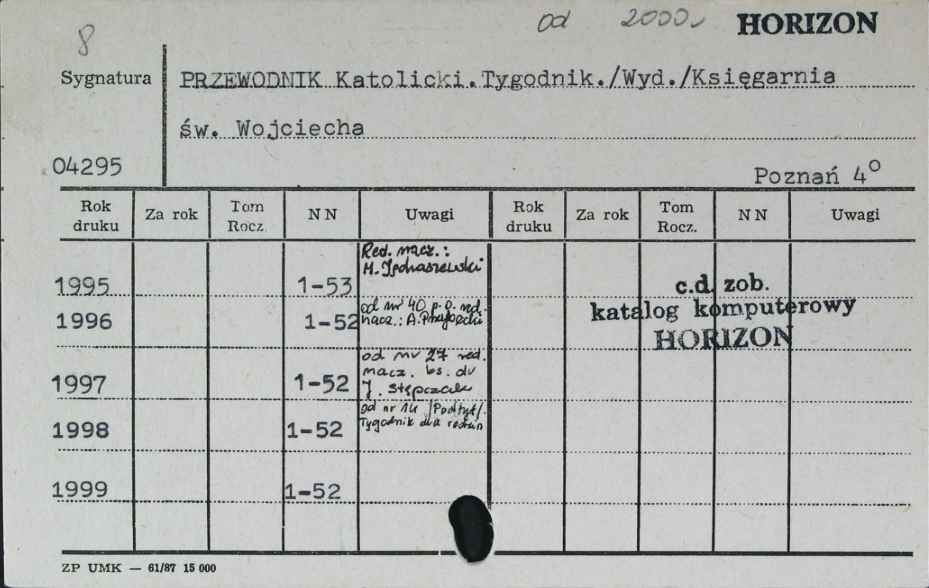 8
od 2000.
HORIZON
Sygnatura
PRZEWODNIK Katolicki.Tygodnik./Wyd./Księgarnia
św. Wojciecha
04295
Poznań 4°
Rok druku Za rok Tom Rocz. NN Uwagi Rok druku Za rok Tom Rocz. NN Uwagi
Red. nacz.:
1995 1-53 M. Jędraszewski
1996 1-52 od nr 40 p.o. red.
nacz.: A.
od nr 27 red.
nacz. ks. dr
1997 1-52 J. Stępczak
od nr 14 /Podtyt/.
1998 1-52 Tygodnik dla rodzin
1999 1-52
c.d. zob.
katalog komputerowy
HORIZON
ZP UMK — 61/87 15 000